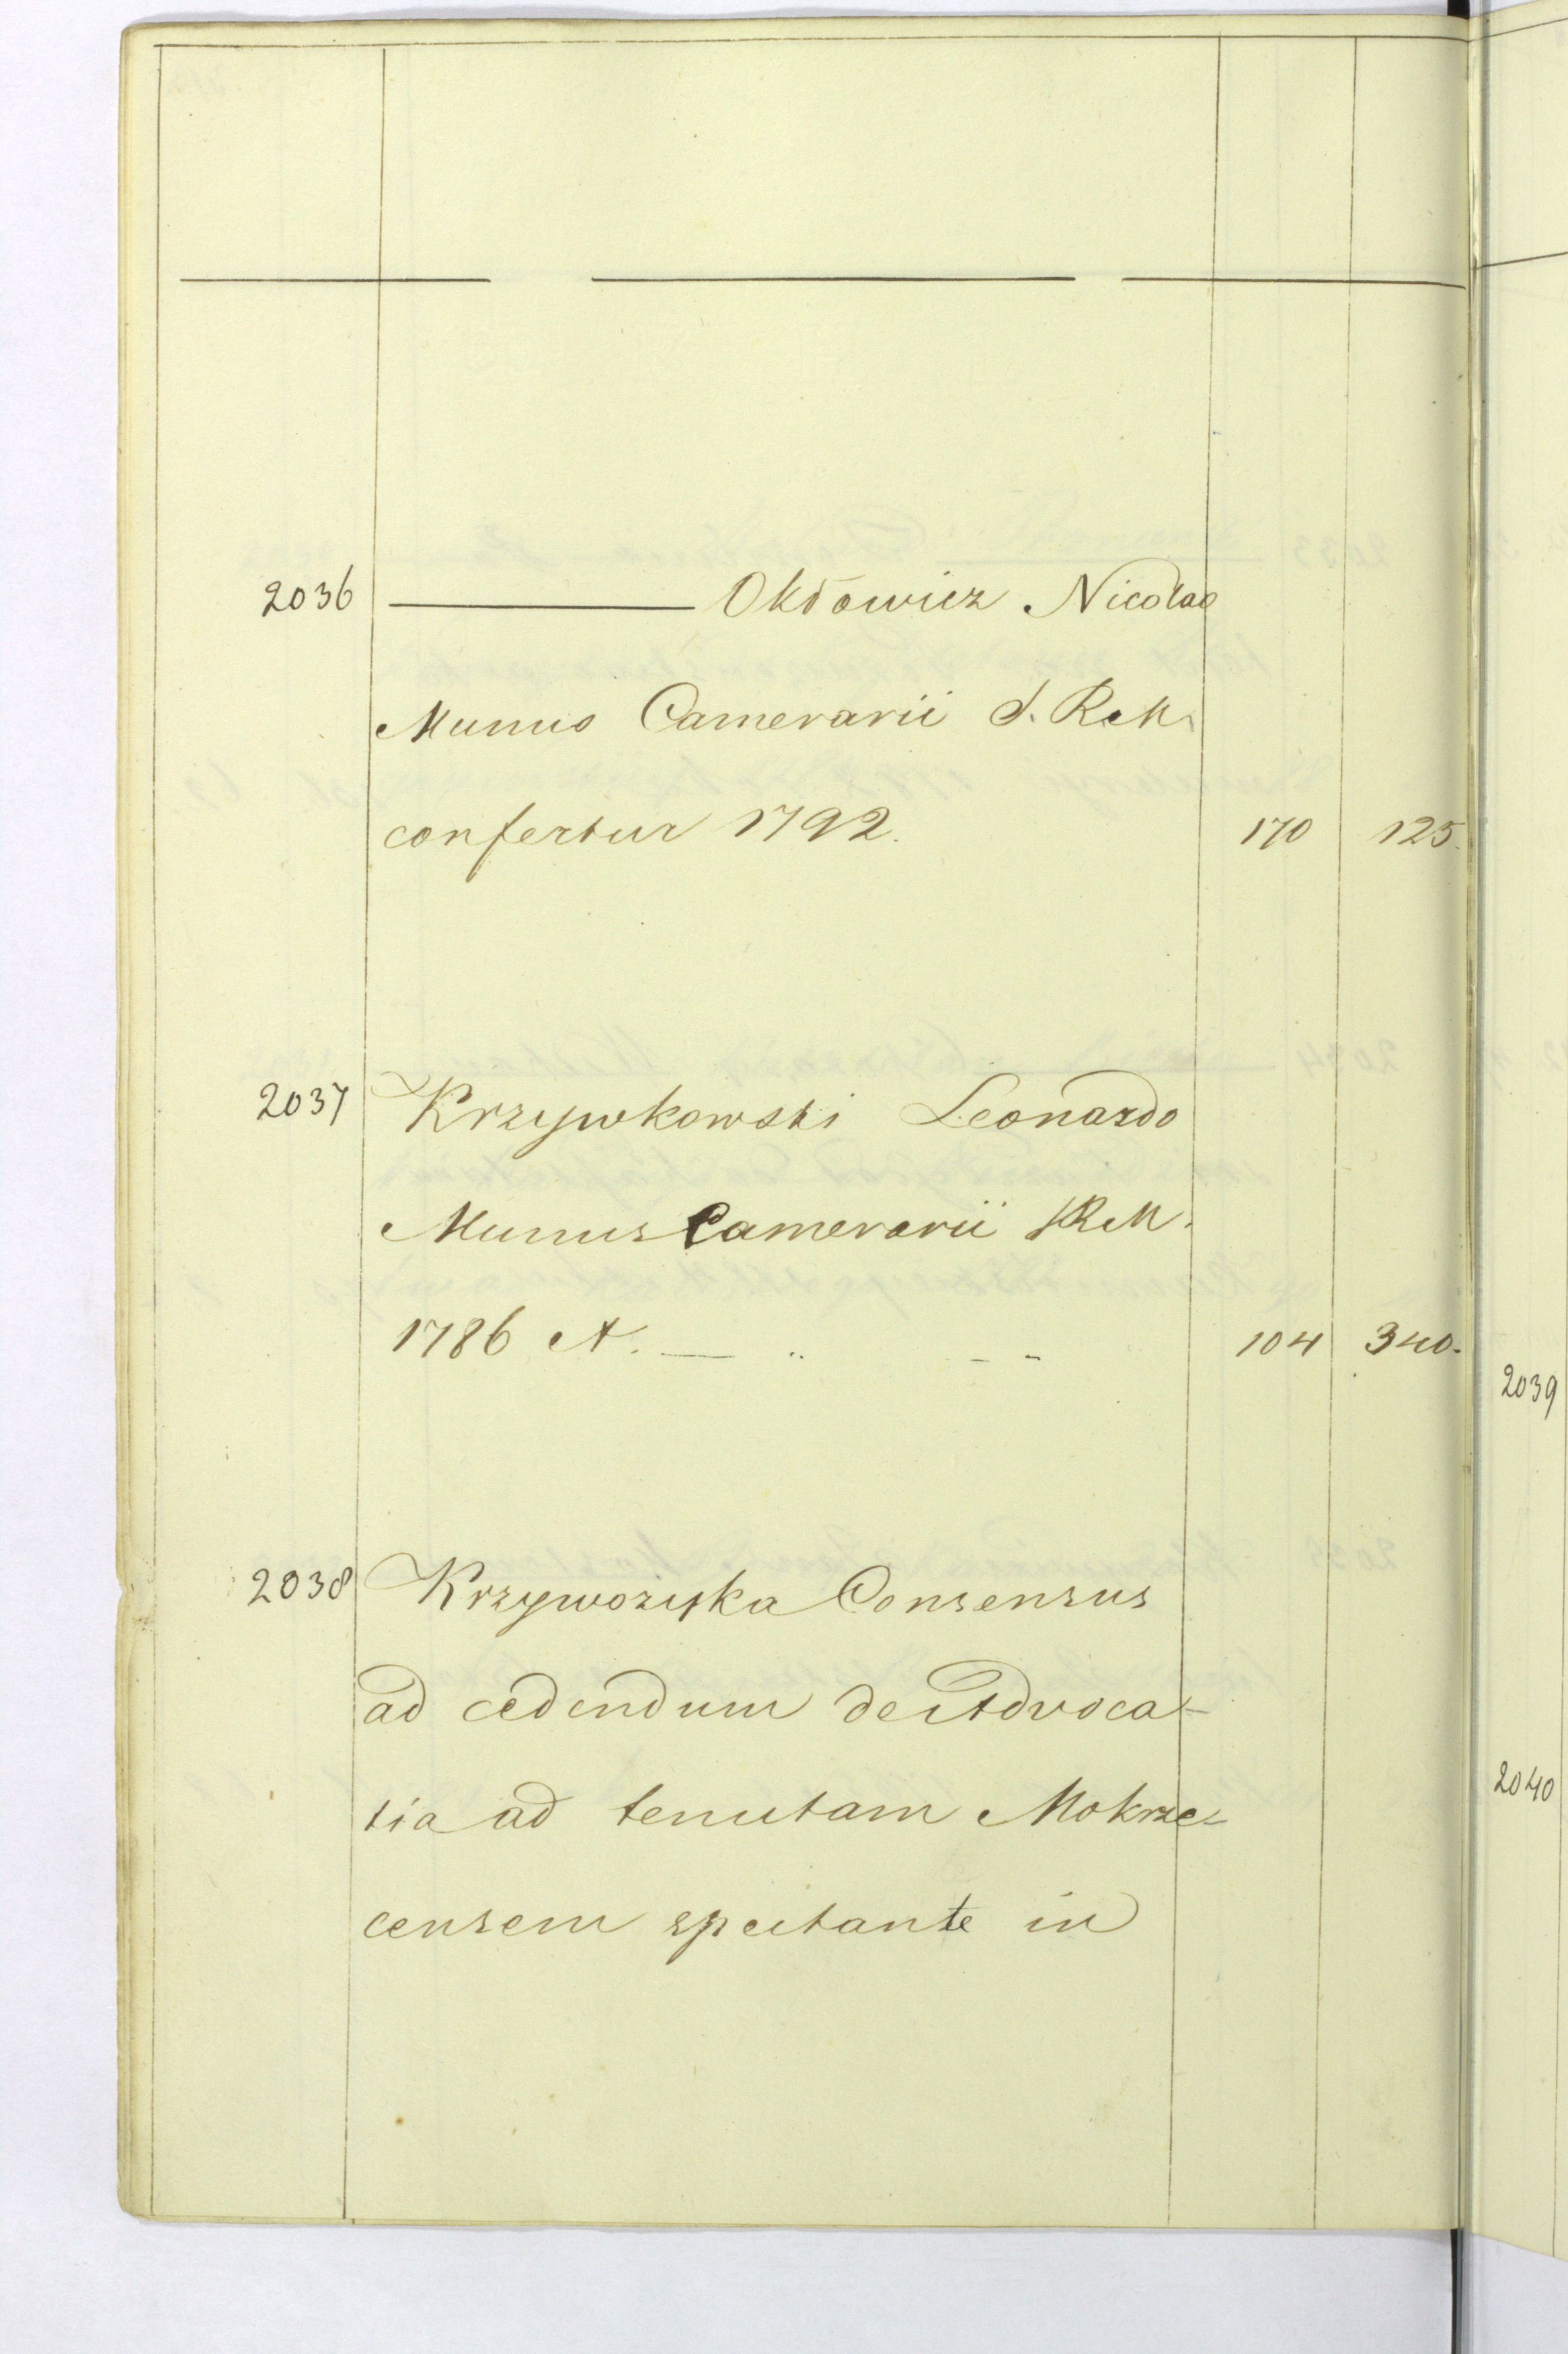 2036 ——— Okłowicz Nicolao
Munus Camerarii S. R. M.
confertur 1792. 170 125.
2037 Krzywkowski Leonardo
Munus Camerarii SRM.
1786 A. — .. - - 104 340.
2038 Krzywozyska Consensus
ad cedendum de Advoca-
tia ad tenutam Mokrze-
censem spectante in
2039
2040